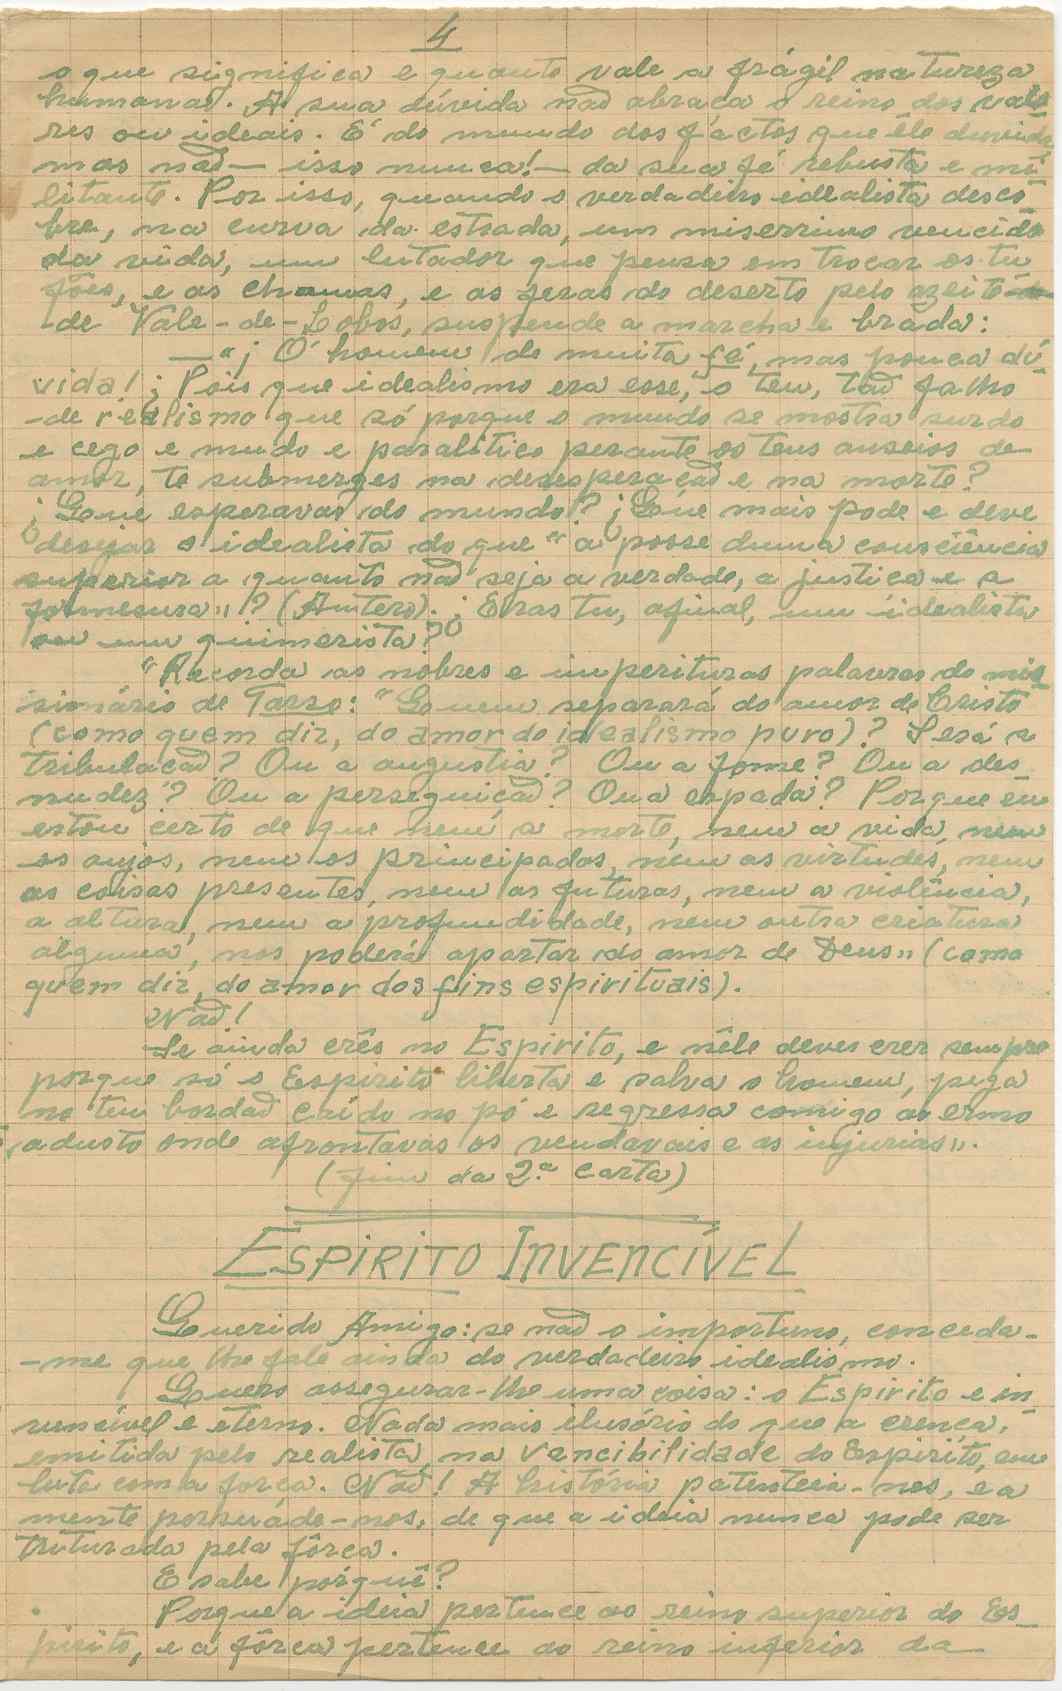 4
o que significa e quanto vale a frágil natureza
humana. A sua dúvida não abraça o reino dos valo
res ou ideais. É do mundo dos fáctos que êle duvida,
mas não — isso nunca! — da sua fé robusta e mi
litante. Por isso, quando o verdadeiro idealista desco
bre, na curva da estrada, um miserrimo vencido
da vida, um lutador que pensa em trocar os tu
fões, e as chamas, e as feras do deserto pelo azeite
de Vale-de-Lobos, suspende a marcha e brada:
—"¡ Ó homem de muita fé, mas pouca dú
vida! ¿Pois que idealismo era esse, o teu, tão falho
de realismo que só porque o mundo se mostra surdo
e cego e mudo e paralítico perante os teus anseios de
amor, te submerges na desesperação e na morte?
¿Que esperavas do mundo? ¿Que mais pode e deve
desejar o idealista do que "a posse duma consciência
superior a quanto não seja a verdade, a justiça e a
formosura"? (Antero). ¿Eras tu, afinal, um idealista
ou um quimerista?
"Recorda as nobres e imperituras palavras do mis
sionário de Tarso: "Quem separará do amor de Cristo
(como quem diz, do amor do idealismo puro)? Será a
tribulação? Ou a angustia? Ou a fome? Ou a des
nudez? Ou a perseguição? Ou a espada? Porque eu
estou certo de que nem a morte, nem a vida, nem
os anjos, nem os principados, nem as virtudes, nem
as coisas presentes, nem as futuras, nem a violência,
a altura, nem a profundidade, nem outra criatura
alguma, nos poderá apartar do amor de Deus" (como
quem diz, do amor dos fins espirituais).
Não!
Se ainda crês no Espirito, e nêle deves crer sempre
porque só o Espirito liberta e salva o homem, pega
no teu bordão caído no pó e regressa comigo ao ermo
adusto onde afrontavas os vendavais e as injurias".
(fim da 2.ª carta)
ESPIRITO INVENCÍVEL
Querido Amigo: se não o importuno, conceda-
-me que lhe fale ainda do verdadeiro idealismo.
Quero assegurar-lhe uma coisa: o Espirito e in
vencível e eterno. Nada mais ilusório do que a crença,
emitida pelo realista, na vencibilidade do Espirito, em
luta com a força. Não! A história patenteia-nos, e a
mente persuáde-nos, de que a ideia nunca pode ser
triturada pela fôrça.
E sabe porquê?
Porque a ideia pertence ao reino superior do Es_
pirito, e a fôrça pertence ao reino inferior da